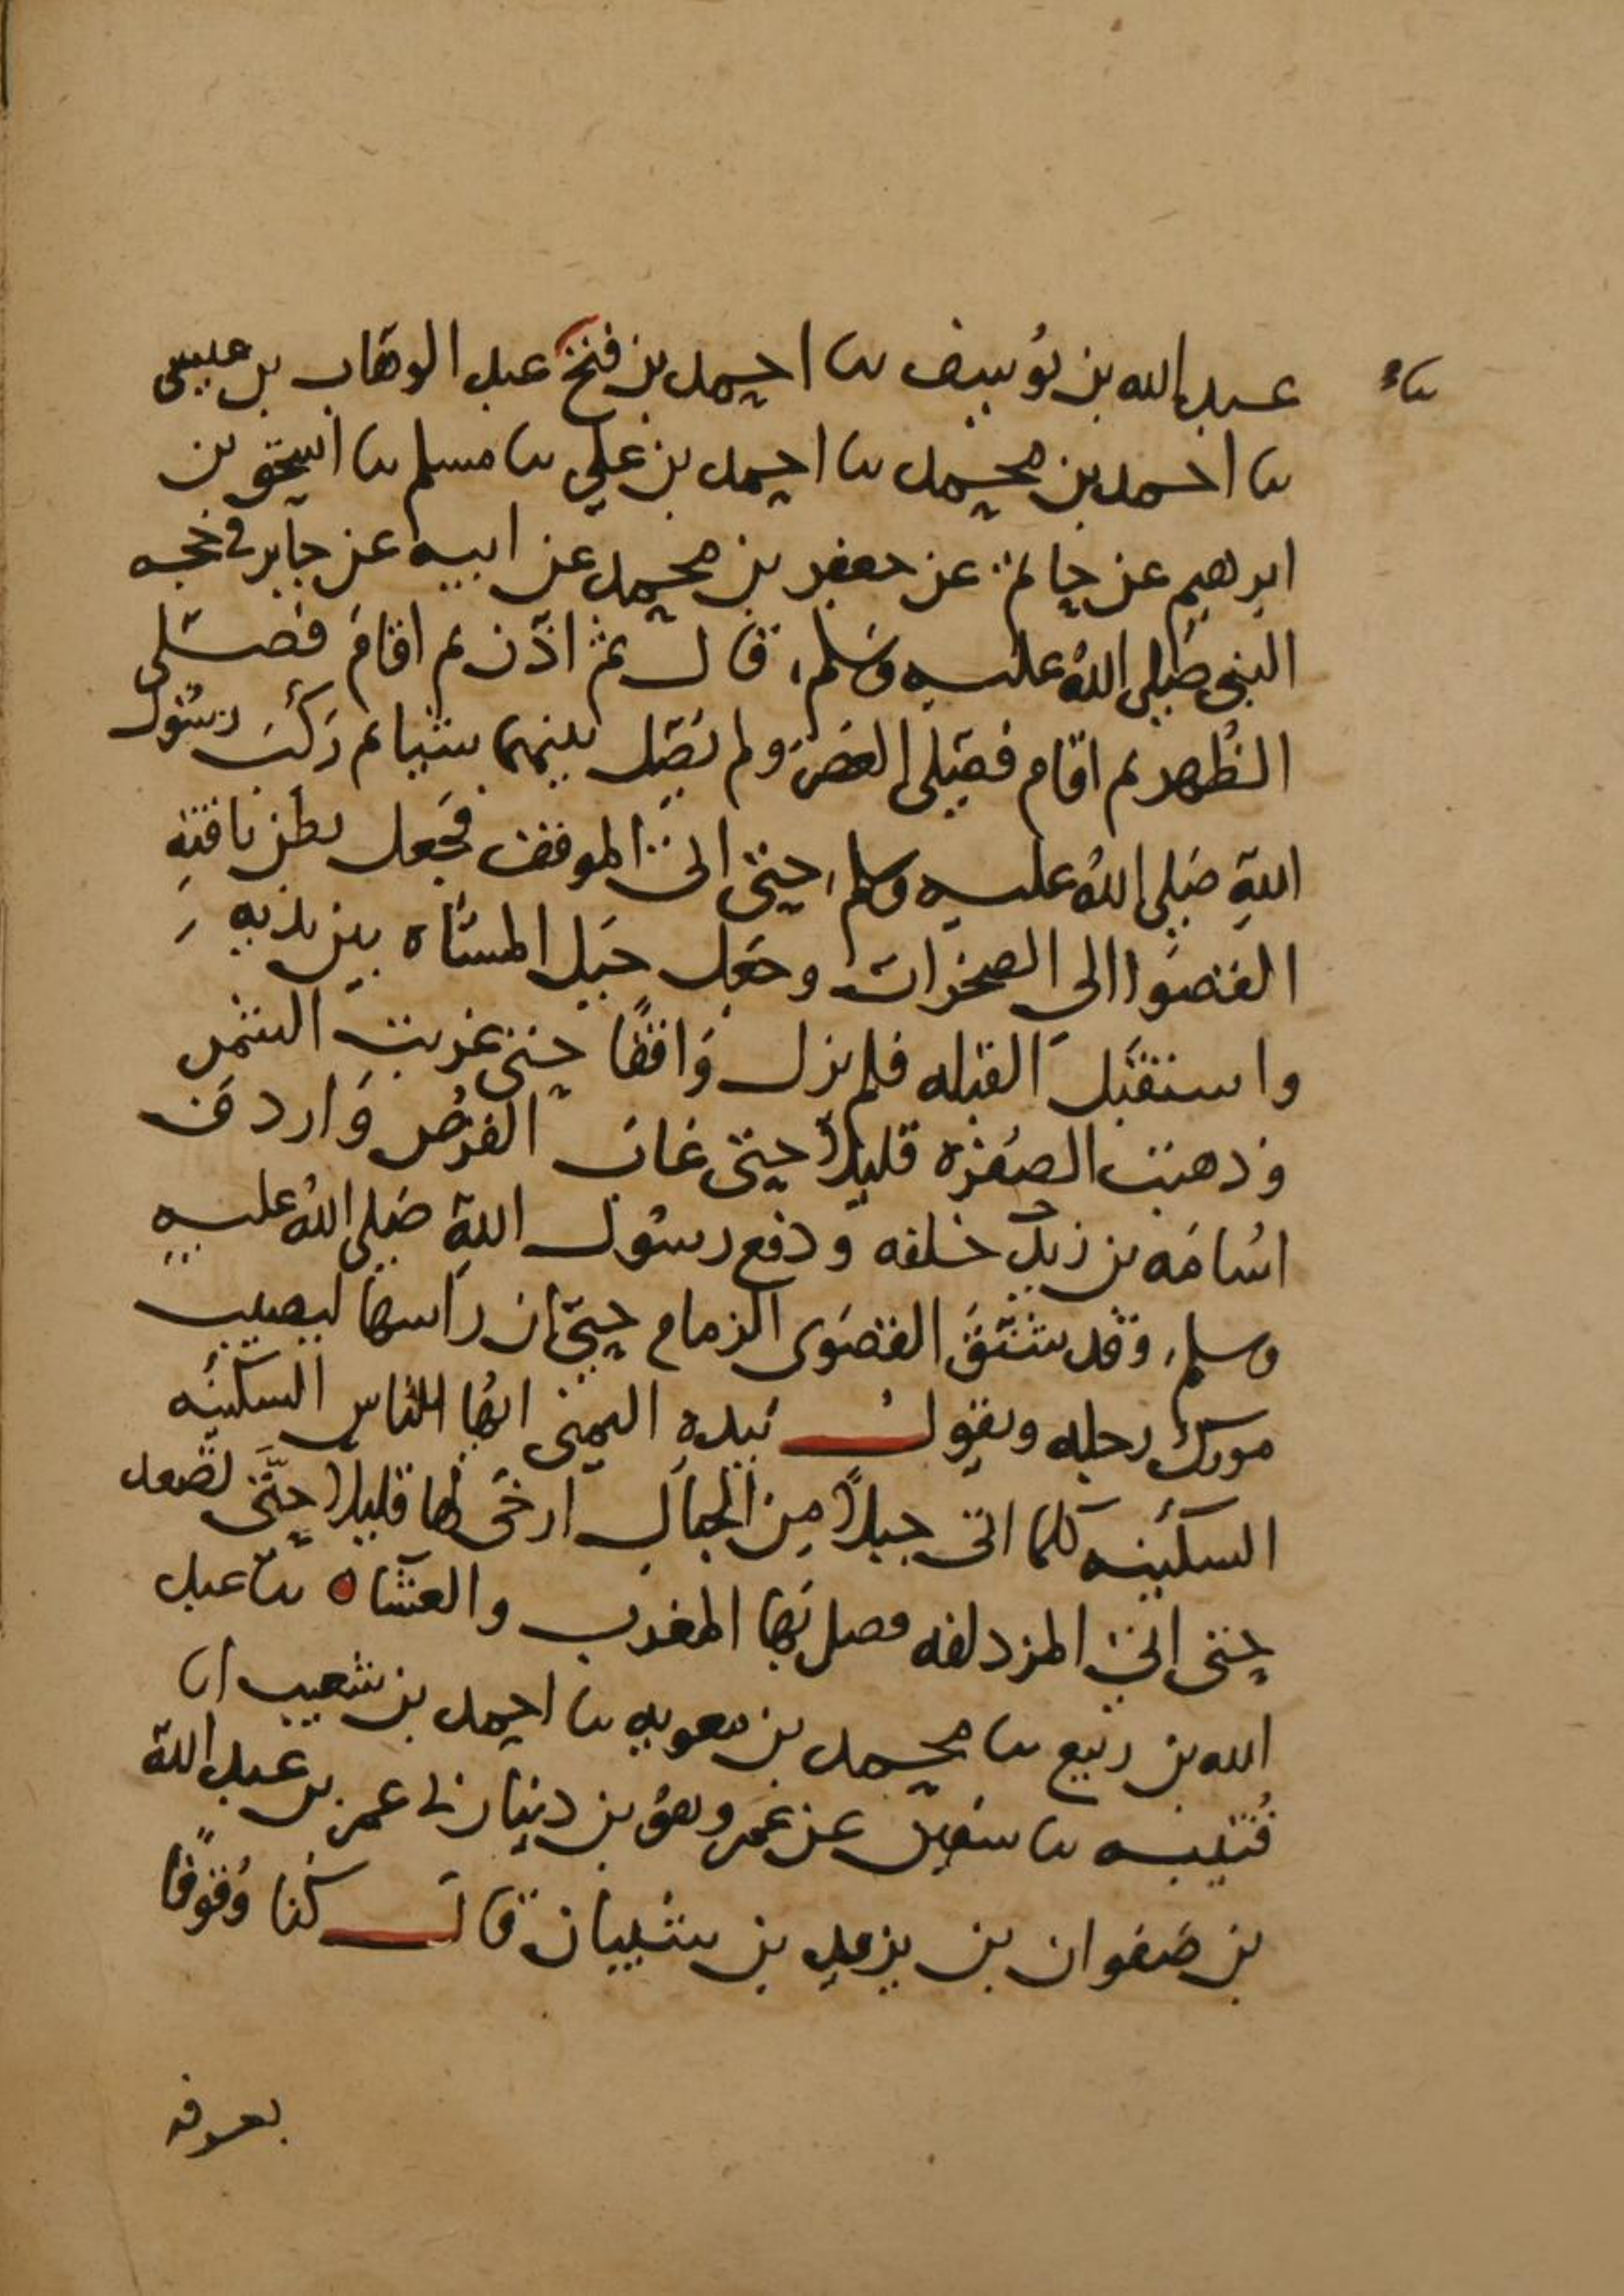 ثنا
عبد الله بن يوسف نا احمد بن فتح عبد الوهاب بن عيسى
نا احمد بن محمد نا احمد بن علي نا مسلم نا اسحق بن
ابرهيم عن حاتم عن جعفر بن محمد عن ابيه عن جابر في حجه
النبي صلى الله عليه وسلم قال ثم اذن ثم اقام فصلى
الظهر ثم اقام فصلى العصر ولم يصل بينهما شيا ثم ركب رسول
الله صلى الله عليه وسلم حتى اتى الموقف فجعل بطن ناقته
القصوا الى الصخرات وجعل حبل المشاه بين يديه
واستقبل القبله فلم يزل واقفًا حتى غربت الشمس
وذهبت الصفره قليلا حتى غاب القرص واردف
اسامه بن زيد خلفه ودفع رسول الله صلى الله عليه
وسلم وقد شنق القصوى الزمام حتى ان راسها ليصيب
مورك رحله ويقول بيده اليمنى ايها الناس السكينه
السكينه كلما اتى حبلًا من الحبال ارخى لها قليلا حتَّى تصعد
حتى اتى المزدلفه فصل بها المغرب والعشاه نا عبد
الله بن ربيع نا محمد بن معويه نا احمد بن شعيب انا
قُتيبه نا سفين عن عمرو هو بن دينار ني عمر بن عبد الله
بن صفوان بن يزيد بن شيبان قال كنا وُقوفًا
بعرفه